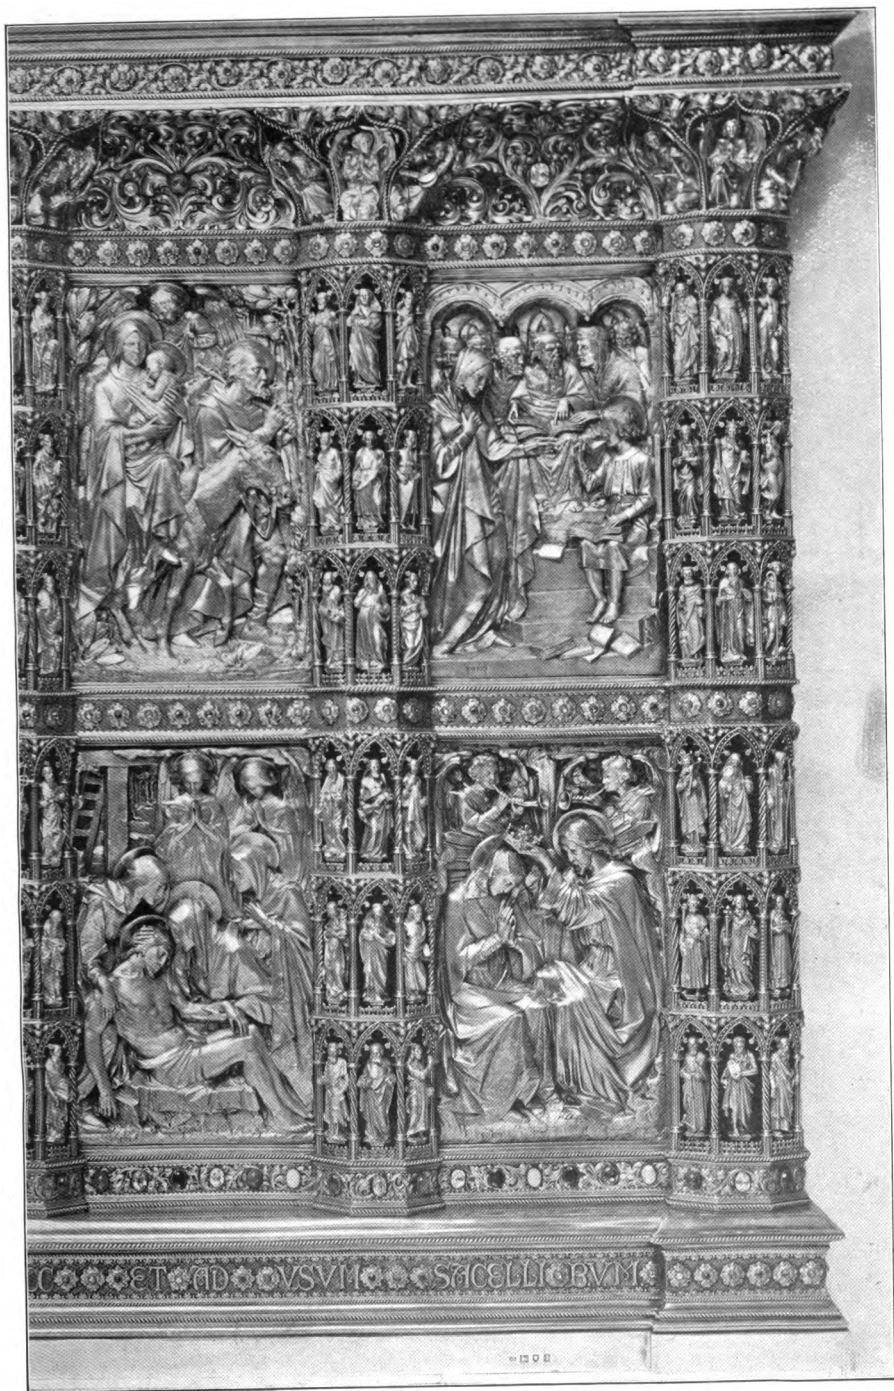 C ET AD VSVM SACELLI BVM